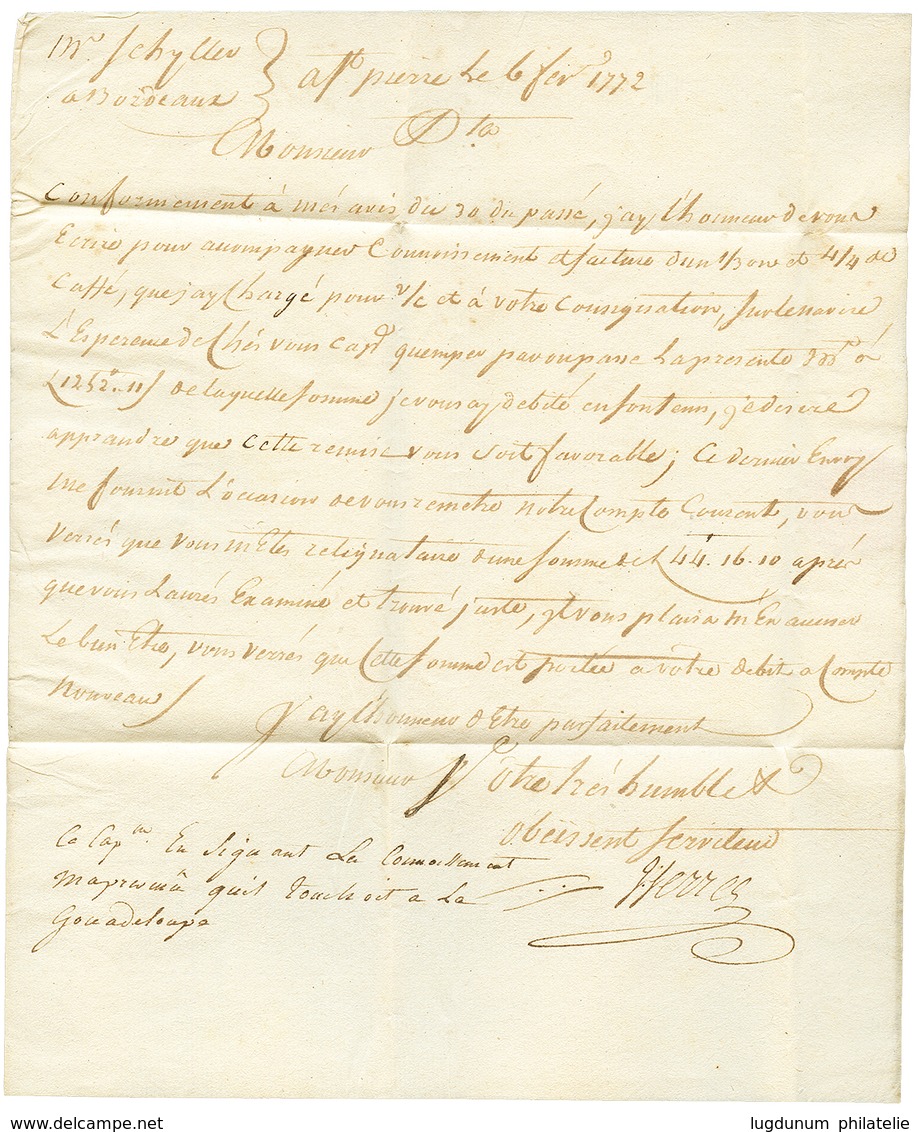 Mr. Schyller
a Bordeaux
a St pierre Le 6 fevr. 1772
Dta
Monsieur
Conformement à mes avis du 30 du passé, j'ay l'honneur de vous
Ecrire pour acompagner Connoissement et facture d'un 1/3 ow et 4/4 de
Caffé, que j'ay Chargé pour v/c et à votre Consignation, sur le navire
L'Esperence de Chés vous Capne quemper par
L 1252.. 11 s de laquelle somme je vous ay debité, je desire
apprandre que Cette remise vous soit favorable; Ce dernier Envoy
me fournit L'occasion de vous remetre notre Compte Courent, vous
verrés que vous m'Etes d'une somme de L 44. 16. 10 aprés
que vous L'aurés Examiné et trouvé juste, il vous plaira m'En acuser
Le bien Etre, vous verrés que Cette somme est portée a votre debit a Compte
nouveau
J'ay l'honneur d'Etre parfaitement
Monsieur
Votre trés humble &
obeissent serviteur
Le Capne. En signant Le Connoissement
qu'il touchoit a La
Gouadeloupe
lugdunum philatelie